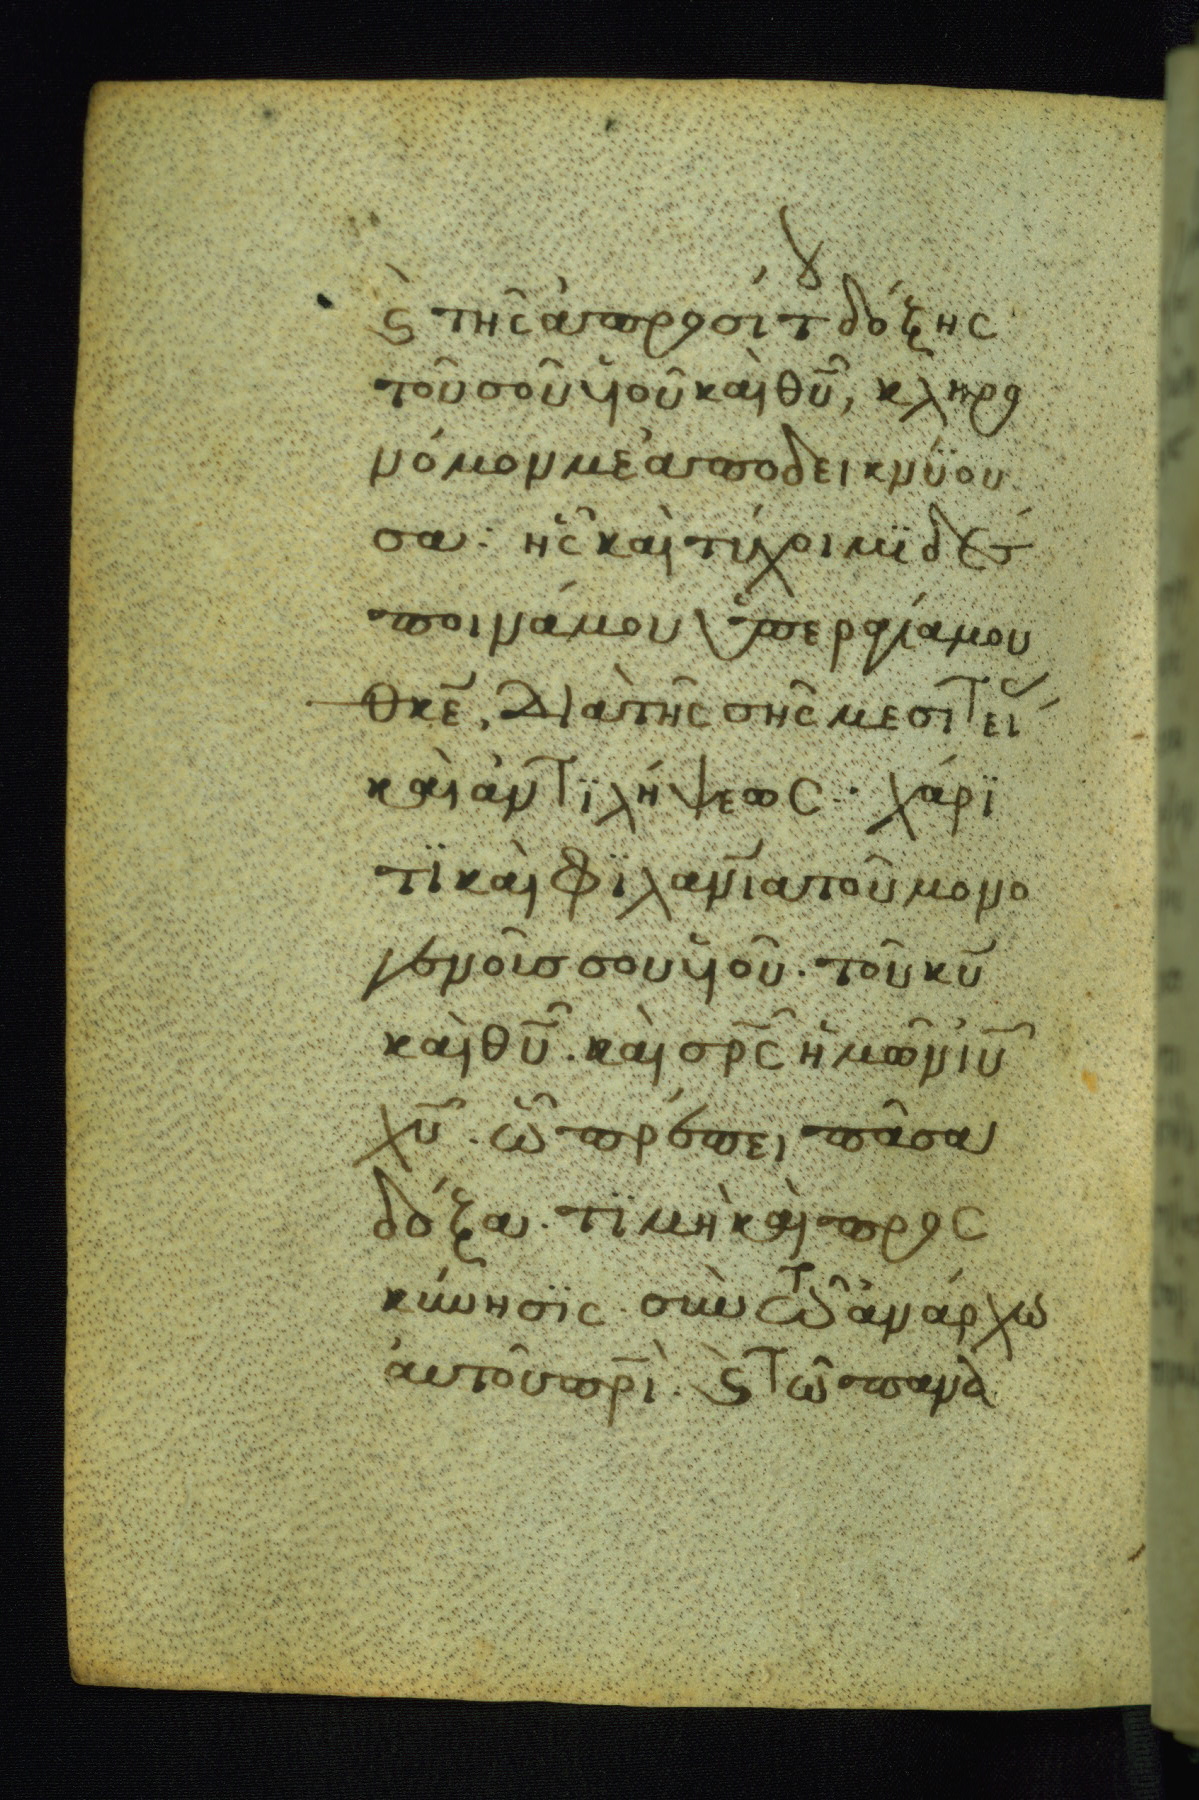 ϛ̀ τῆς ἀπροσίτου δόξης
τοῦ σοῦ ὑιοῦ καὶ θῦ, κληρο
νόμον με ἀποδεικνύου
σα: ἧς καὶ τύχοιμϊ δέσ
ποινά μου ὑπεραγία μου
θκε, Διὰ τῆς σῆς μεσιτεί
καὶ ἀντϊλήψεως· χάρι
τϊ καὶ φϊλανια τοῦ μονο
γενοῦς σου ὑιοῦ· τοῦ κυ
καὶ θῦ· καὶ σρς ἡμῶν ιῦ
χῦ· ὧ πρέπει πᾶσα
δόξα· τϊμὴ καὶ προσ
κύνησϊς· σὺν τῶ ἀνάρχω
αυτοῦ πρι· ϛ̀ τῶ παν